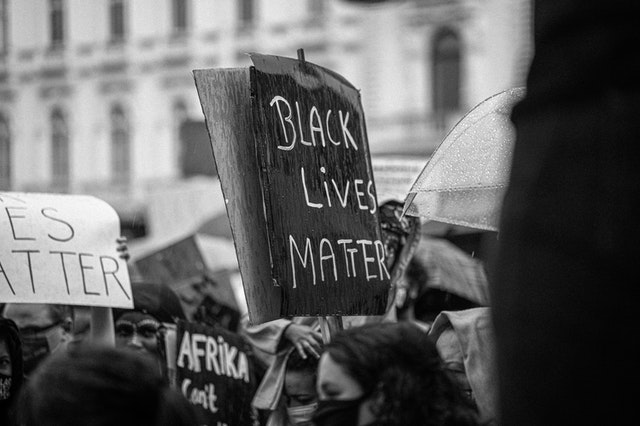 ES
ATTER
BLACK
LiVES
MATTER
AFRiKA
Can't